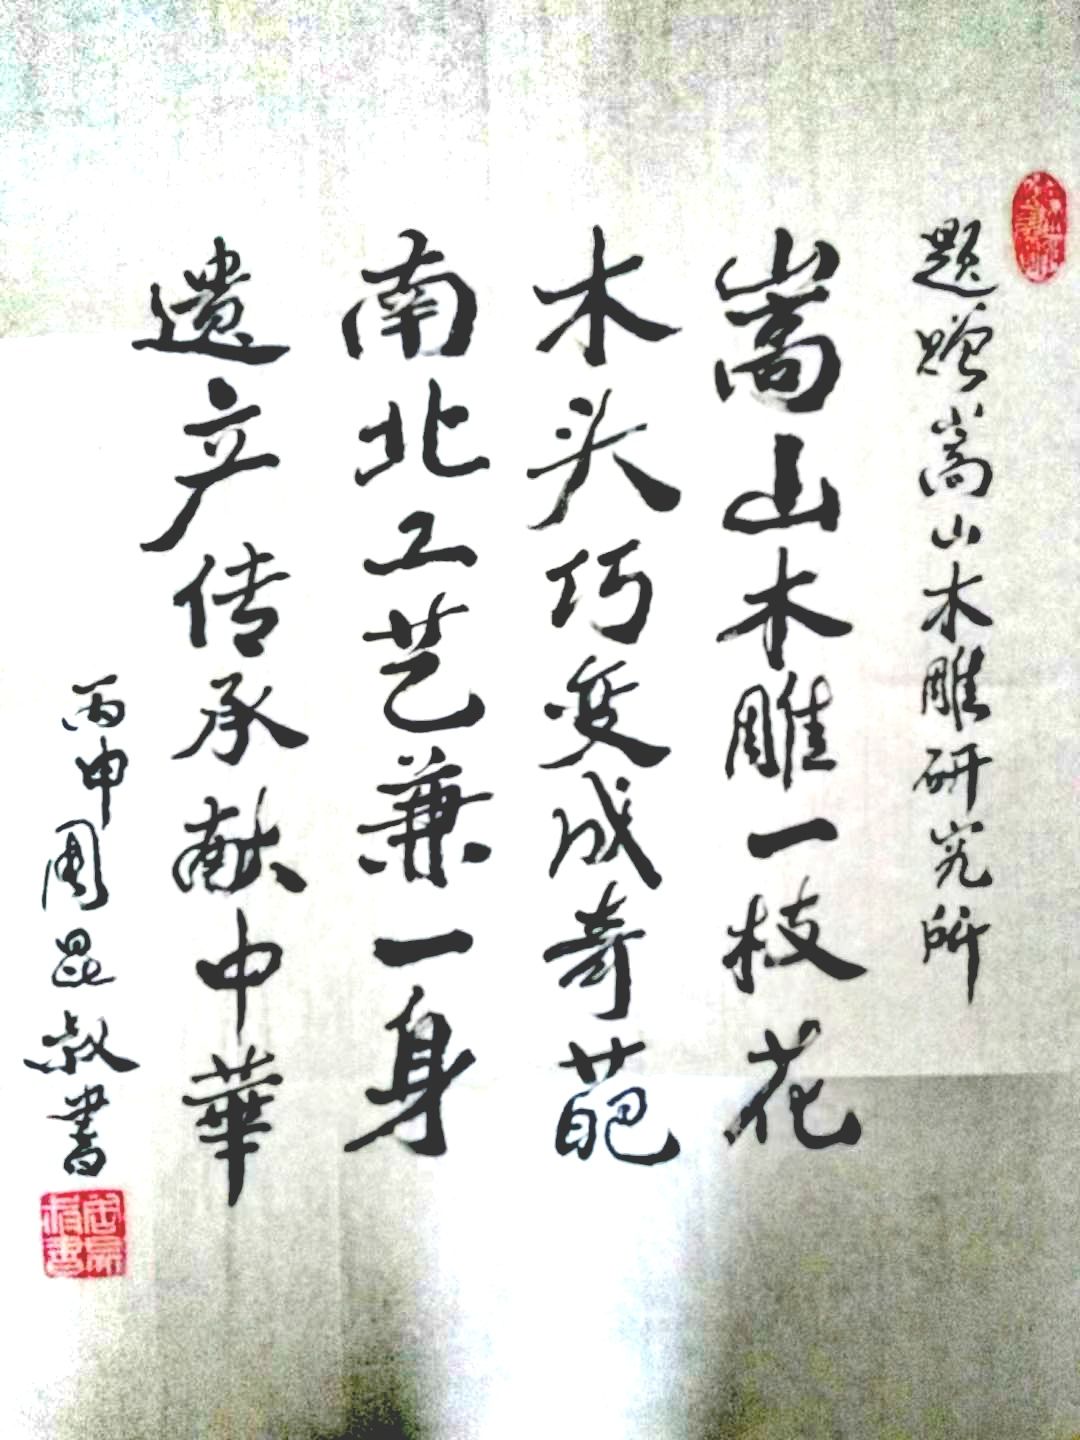 题赠嵩山木雕研究所
嵩山木雕一枝花
木头巧变成奇葩
南北工艺兼一身
遗产传承献中華
丙申周昆叔書